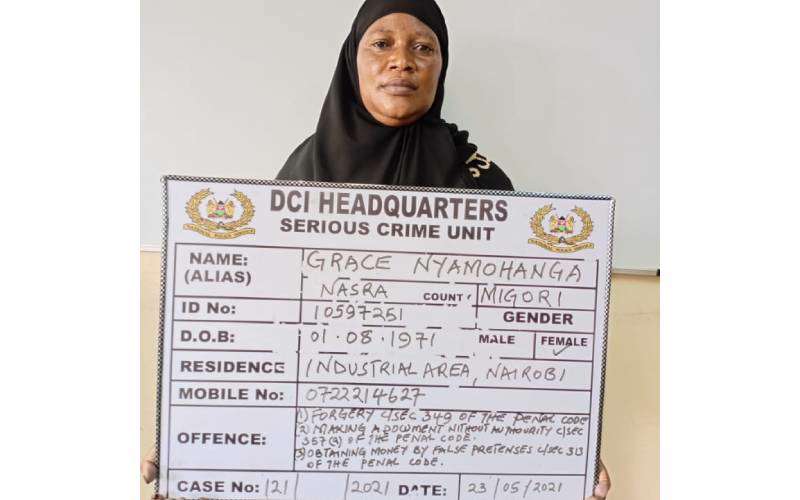 DCI HEADQUARTERS
SERIOUS CRIME UNIT
NAME: GRACE NYAMOHANGA
(ALIAS) NASRA COUNT MIGORI
ID No: 10597251 GENDER
D.O.B: 01.08.1971 MALE FEMALE ✓
RESIDENCE INDUSTRIAL AREA, NAIROBI
MOBILE No: 0722214627
OFFENCE: 1) FORGERY C/SEC 349 OF THE PENAL CODE
2) MAKING A DOCUMENT WITHOUT AUTHORITY C/SEC
357(a) OF THE PENAL CODE.
3) OBTAINING MONEY BY FALSE PRETENSES C/SEC 313
OF THE PENAL CODE.
CASE No: 121/ /2021 DATE: 23/05/2021